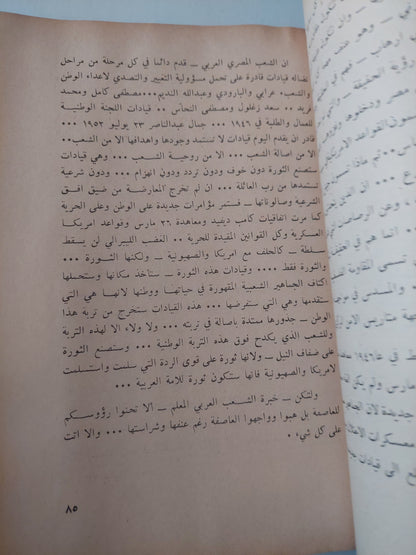 ان الشعب المصري العربي ــ قدم دائما في كل مرحلة من مراحل
نضاله قيادات قادرة على تحمل مسؤولية التغيير والتصدي لاعداء الوطن
والشعب، عرابي والبارودي وعبدالله النديم ٠٠٠مصطفى كامل ومحمد
فريد ٠٠ سعد زغلول ومصطفى النحاس ٠٠ قيادات اللجنة الوطنية
للعمال والطلبة في ١٩٤٦ ٠٠٠ جمال عبدالناصر ٢٣ يوليو ١٩٥٢ ٠٠٠
قادر ان يقدم اليوم قيادات لا تستمد وجودها واهدافها الا من الشعب٠٠
الا من اصالة الشعب ٠٠٠ الا من روحية الشعب ٠٠٠ وهي قيادات
ستصنع الثورة دون خوف ودون تردد ودون انهزام ٠٠٠ ودون شرعية
تستمدها من رب العائلة ٠٠٠ ان لم تخرج المعارضة من ضيق افق
الشرعية وصالوناتها ــ فستمر مؤامرات جديدة على الوطن وعلى الحرية
كما مرت اتفاقيات كامب ديفيد ومعاهدة ٢٦ مارس وقواعد امريكا
العسكرية وكل القوانين المقيدة للحرية ٠٠ الغضب الليبرالي لن يسقط
سلطة ــ كالحلف مع امريكا والصهيونية ــ ولكنها الثورة ٠٠٠
والثورة فقط ٠٠٠٠ وقيادات هذه الثورة ــ ستأخذ مكانها وستحملها
اكتاف الجماهير الشعبية المقهورة في حياتهـا ووطنها لانهـا هي التي
ستقدمها وهي التي ستفرضها ٠٠٠ هذه القيادات ستخرج من تربة هذا
الوطن ــ جذورها ممتدة باصالة في تربته ٠٠ ولا ولاء الا لهذه التربة
وللشعب الذي يكدح فوق هذه التربة الوطنية ٠٠ وستصنع الثورة
على ضفاف النيل ــ ولانها ثورة على قوى الردة التي سلمت واستسلمت
لامريكا والصهيونية فانها ستكون ثورة للامة العربية ٠٠٠
ولتكن ــ خبرة الشعب العربي المعلم ــ ألا تحنوا رؤوسكم
للعاصفة بل هبوا وواجهوا العاصفة رغم عنفها وشراستها ٠٠٠ والا اتت
على كل شيء ٠
٨٥